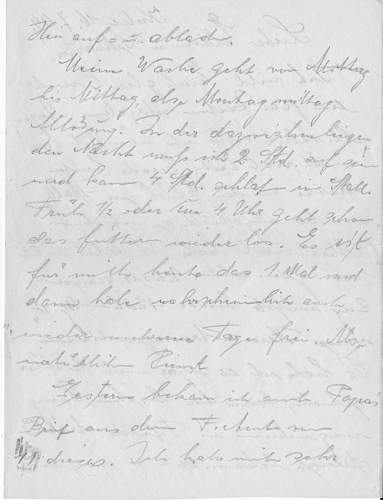 Heu auf= u. abladen.
Meine Wache geht von Mittag
bis Mittag, also Montag mittag
Ablösung. In der dazwischen liegen
den Nacht muß ich 2 Std. auf sein
und kann 4 Std. schlafen im Stall.
Früh ½ oder um 4 Uhr geht schon
das futtern wieder los. Es ist
für mich heute das 1. Mal und
dann habe wahrscheinlich auch
wieder mehrere Tage frei.
natürlich Dienst
Gestern bekam ich auch Papas
Brief aus dem vom
dieses. Ich habe mich sehr